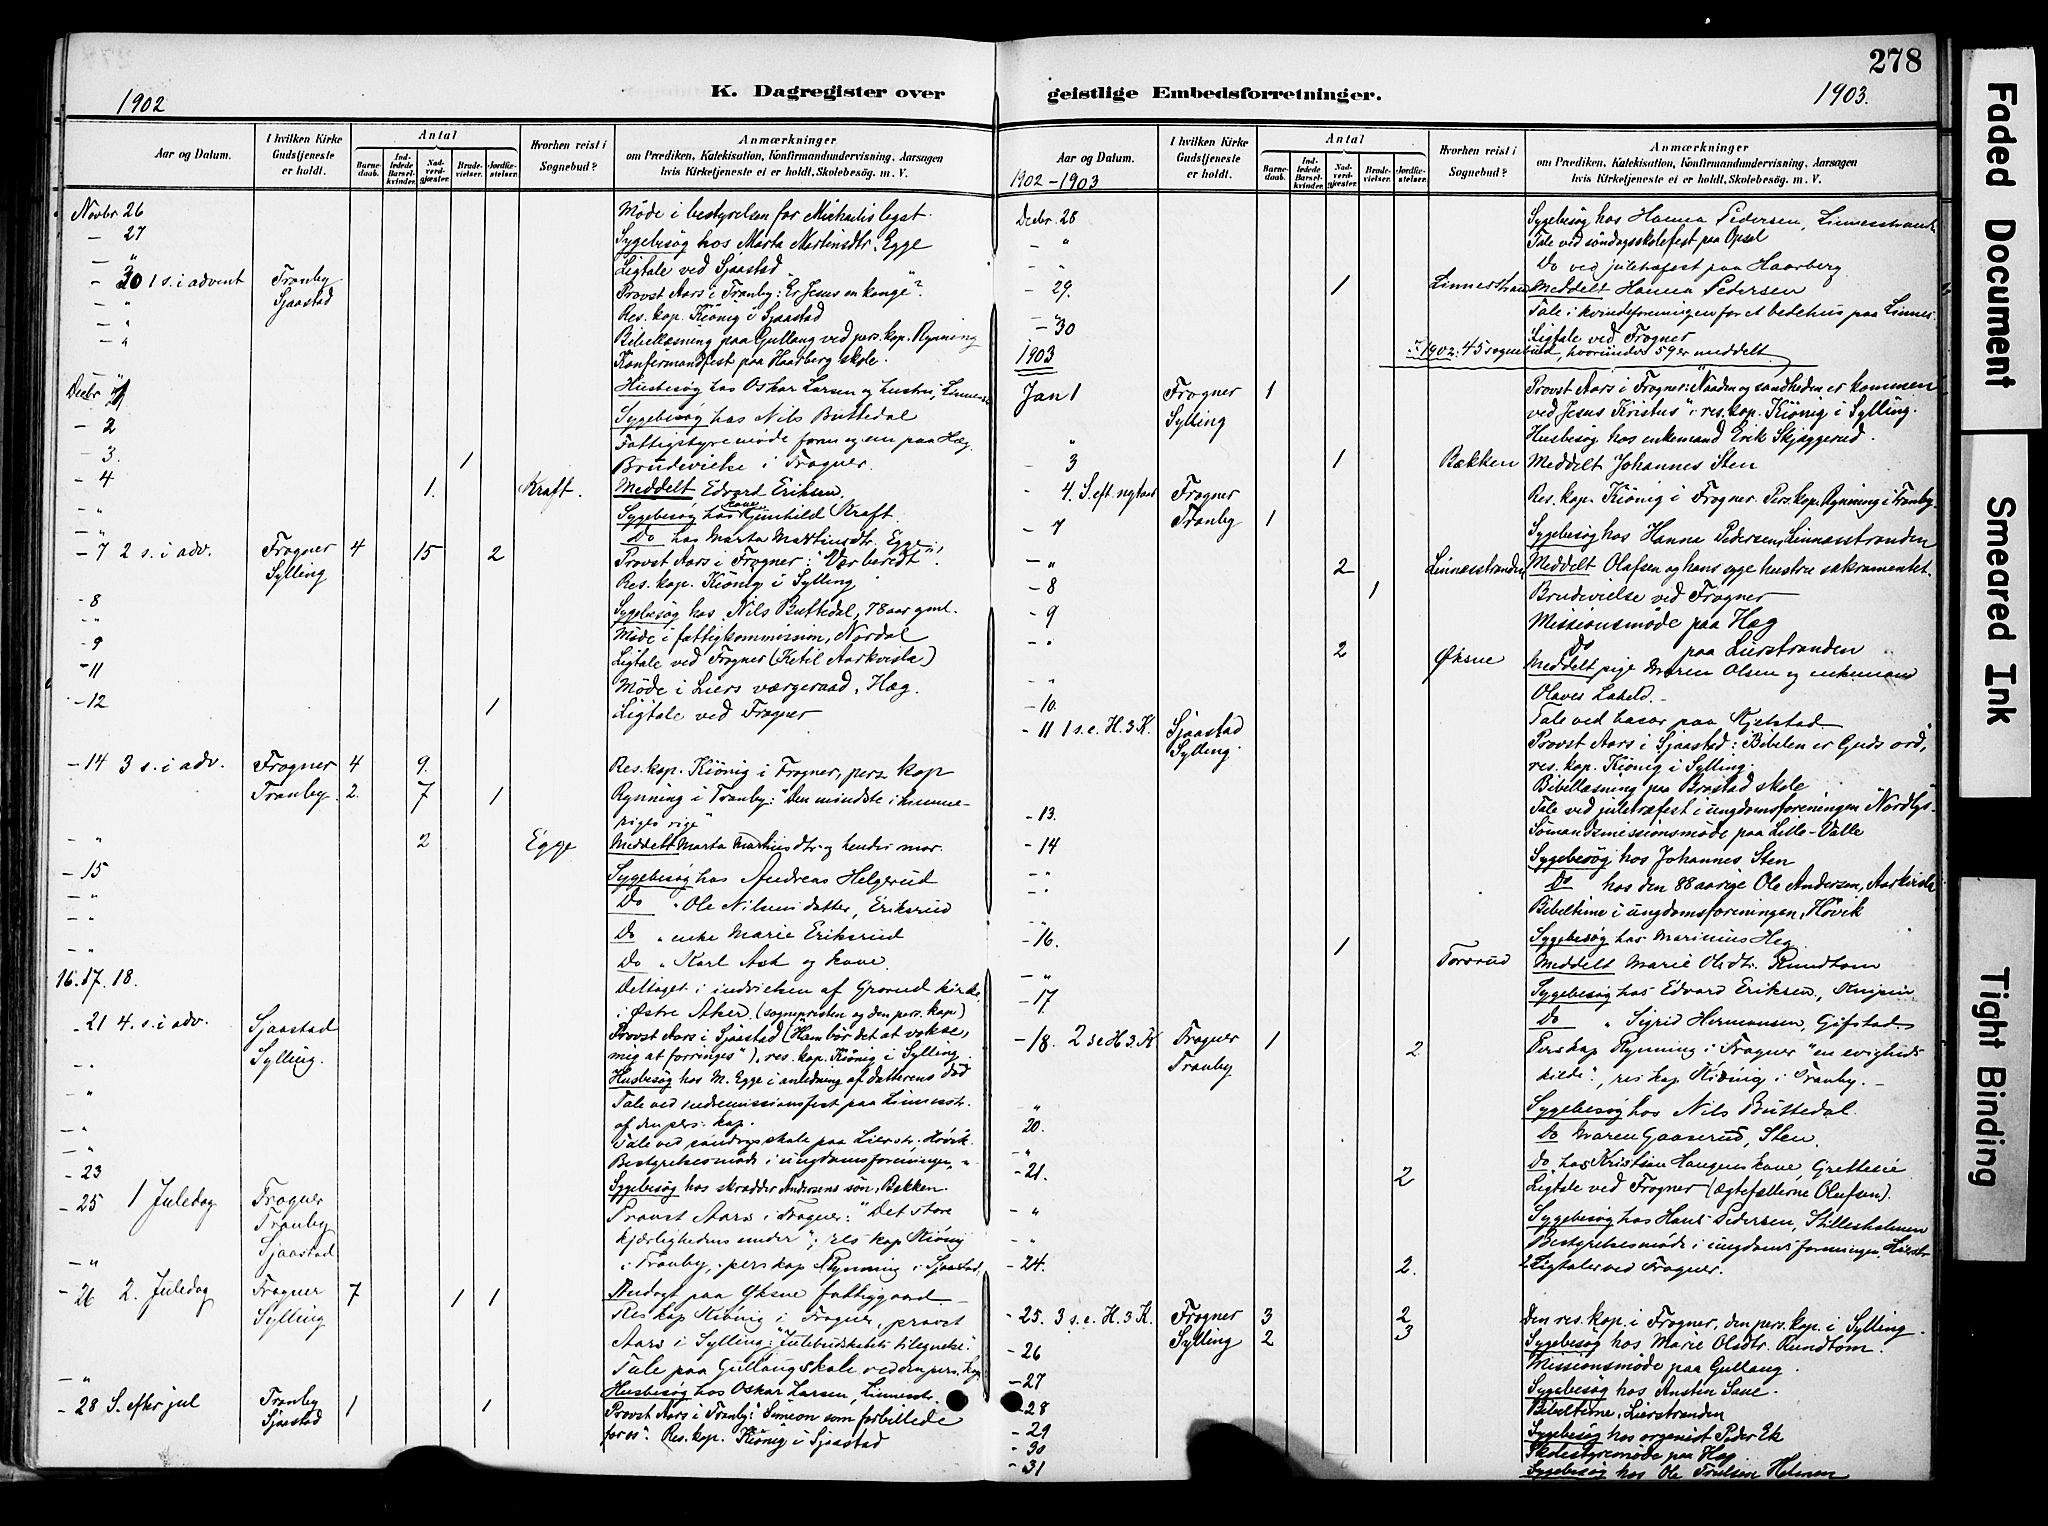 278
1902
K. Dagregister over
geistlige Embedsforretninger.
1903.
Aar og Datum.
I hvilken Kirke Gudstjeneste er holdt.
Antal
Barnedaab.
Indledede Barselkvinder.
Nadverdgjæster.
Brudevielser.
Jordfæstelser.
Hvorhen reist i Sognebud?
Anmærkninger
om Prædiken, Katekisation, Konfirmandundervisning, Aarsagen
hvis Kirketjeneste ei er holdt, Skolebesøg. m. V.
Novbr. 26 Møde i bestyrelsen for Michaelis legat.
- 27 Sygebesøg hos Marta Martinsdtr. Egge
- " Ligtale ved Sjaastad
- 30 1 s. i advent Tranby Provst Aars i Tranby: "Er Jesus en konge".
- " Sjaastad Res. kap. Kiönig i Sjaastad
- " Bibellæsning paa Gullaug ved pers. kap. Rynning
Konfirmandfest paa Haarberg skole.
Decbr 1 Husbesøg hos Oskar Larsen og hustru, Linnesstr.
Sygebesøg hos Nils Buttedal
- 2 Fattigstyremøde form og em paa Hæg.
- 3. 1 Brudevielse i Frogner.
- 4 1. Kraft. Meddelt Edvard Eriksen.
- " Sygebesøg hos kone Gunhild Kraft.
- " Do hos Marta Martinsdtr. Egge
- 7 2 s. i adv. Frogner 4 15 2 Provst Aars i Frogner: "Vær beredt".
Sylling Res. kap. Kiönig i Sylling
- 8 Sygebesøg hos Nils Buttedal, 78 aar gml.
- " Møde i fattigkommission, Nordal
- 9 Ligtale ved Frogner (Ketil Aarkvisla)
- 11 Møde i Liers værgeraad, Hæg.
- 12 1 Ligtale ved Frogner
- 14 3 s. i adv. Frogner 4 9. Res. kap. Kiönig i Frogner, pers kap
Tranby. 2. 7 1 Rynning i Tranby: "Den mindste i himme-
riges rige"
- " 2 Egge Meddelt Marta Martinsdtr. og hendes mor.
- 15 Sygebesøg hos Andreas Helgerud
- " Do " Ole Nilsens datter, Eriksrud
- " Do " enke Marie Eriksrud
- " Do " Karl Ask og kone.
16. 17. 18. Deltaget i indvielsen af Grorud kirke,
i Østre Aker. (sognepresten og den pers. kap)
- 21 4. s. i adv. Sjaastad Provst Aars i Sjaastad ("Ham bør det at vokse,
Sylling. mig at forringes"), res. kap. Kiönig i Sylling.
- " Husbesøg hos M. Egge i anledning af datterens død
- " Tale ved indremissionsfest paa Linnesstr.
af den pers. kap.
- " Tale ved søndagsskole paa Lierstr. Høvik.
- " Bestyrelsesmøde i ungdomsforeningen, "
- 23 Sygebesøg hos skrædder Andersens søn, Bakken.
- 25 1 Juledag Frogner Provst Aars i Frogner: "Det store
Tranby kjærlighedens under"; res kap Kiönig
Sjaastad i Tranby, pers kap Rynning i Sjaastad.
- " Andagt paa Øksne fattiggaard.
- 26 2. Juledag Frogner 7 1 1 Res kap Kiönig i Frogner, provst
Sylling Aars i Sylling: "Julebudskabets tilegnelse".
- " Tale paa Gullaug skole ved den pers. kap.
Husbesøg hos Oskar Larsen, Linnesstr.
- 28 S. efter jul Tranby 1 1 Provst Aars i Tranby: "Simeon som forbillede
Sjaastad for os". Res. kap. Kiönig i Sjaastad
Aar og Datum.
I hvilken Kirke Gudstjeneste er holdt.
Antal
Barnedaab.
Indledede Barselkvinder.
Nadverdgjæster.
Brudevielser.
Jordfæstelser.
Hvorhen reist i Sognebud?
Anmærkninger
om Prædiken, Katekisation, Konfirmandundervisning, Aarsagen
hvis Kirketjeneste ei er holdt, Skolebesøg. m. V.
1902-1903
Decbr. 28 Sygebesøg hos Hanna Pedersen, Linnesstrand
- " Tale ved søndagsskolefest paa Opsal
- " Do ved juletræfest paa Haarberg
- 29. 1 Linnesstran Meddelt Hanna Pedersen
- " Tale i kvindeforeningen for et bedehus paa Linnes.
- 30 Ligtale ved Frogner
1903 I 1902: 45 sognebud, hvorunder 59 er meddelt
Jan 1 Frogner 1 Provst Aars i Frogner: "Naaden og sandheden er kommen
Sylling ved Jesus Kristus"; res. kap. Kiönig i Sylling.
- " Husbesøg hos enkemand Erik Skjæggerud.
- 3 1 Bækken Meddelt Johannes Sten
- 4. S. eft. nytaar Frogner Res. kap. Kiönig i Frogner. Pers. kap. Rynning i Tranby.
Tranby 1
- 7 Sygebesøg hos Hanna Pedersen, Linnesstranden
- " 2 Linnesstranden Meddelt Olafsen og hans syge hustru sakramentet.
- 8 1 Brudevielse ved Frogner
- 9 Missionsmøde paa Hæg
- " Do paa Lierstranden
2 Øksne Meddelt pige Maren Olsen og enkemand
Olaves Laheld.
- 10. Tale ved basar paa Kjelstad
- 11 1 s. e. H. 3 K. Sjaastad Provst Aars i Sjaastad: "Bibelen er Guds ord,
Sylling. res. kap. Kiönig i Sylling.
Bibellæsning paa Brastad skole
- 13. Tale ved juletræfest i ungdomsforeningen "Nordlys".
Sømandsmissionsmøde paa Lille-Valle
- 14 Sygebesøg hos Johannes Sten
- " Do hos den 88 aarige Ole Andersen, Aarkvisla
- " Bibeltime i ungdomsforeningen, Høvik
- " Sygebesøg hos Marinius Heg.
- 16. 1 Torsrud Meddelt Marie Olsdtr. Rundtom
- " Sygebesøg hos Edvard Eriksen,
- 17. Do " Sigrid Hermansen, Gifstad
- 18. 2 s e H. 3. K Frogner 1 2 Perskap Rynning i Frogner "en evigheds
Tranby kilde", res kap Kiönig i Tranby.
- " Sygebesøg hos Nils Buttedal.
20. Do Maren Gaaserud, Sten.
- " Do hos Kristian Haugens kone Grettelie
- 21. 2 Ligtale ved Frogner (ægtefællerne Olufsen).
- " Sygebesøg hos Hans Pedersen, Stilleholmen
- " Bestyrelsesmøde i ungdomsforeningen, Lierstr
- 24. 2. 2 Ligtaler ved Frogner.
- 25. 3 s. e. H. 3 K. Frogner 3 2 Den res. kap. i Frogner, den pers. kap. i Sylling.
Sylling 2 3 Sygebesøg hos Marie Olsdtr. Rundtom.
- 26 Missionsmøde paa Gullaug.
- 27 Sygebesøg hos Ansten
- 28 Bibeltime, Lierstranden
- 29 Sygebesøg hos organist Peder Ek
- 30 Skolestyremøde paa Hæg
- 31 Sygebesøg hos Ole
Faded Document
Smeared Ink
Tight Binding